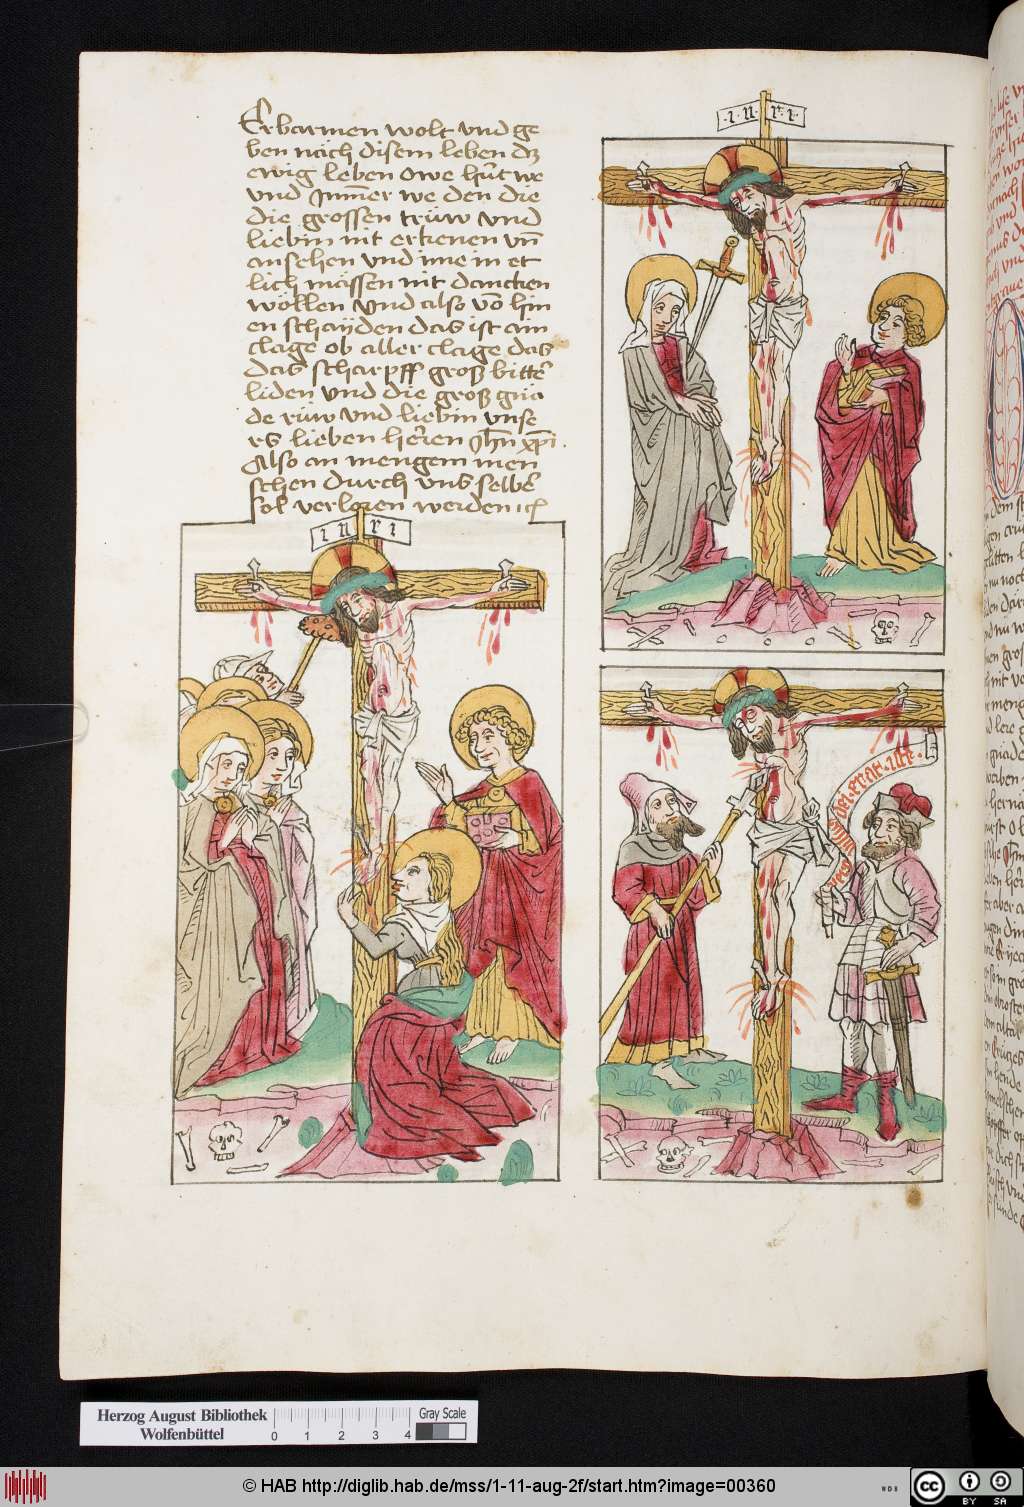 Erbarmen wolt vnd ge
ben näch disem leben dz
ewig leben Owe hüt we
vnd Jmm̄er we den die
die grossen trüw vnd
liebin nit erkenen vn̄
ansehen vnd ime in et
lich mässen nit dancken
wöllen Vnd also vō hin
en schayden das ist ain
clage ob aller clage das
das scharpff groß bitter
liden vnd die groß gnä
de rüw vnd liebin vnse
rs lieben herren Jhn xpi.
Also an mengem men
schen durch vns selber
sol verloren werden
i n r i
i n r i
dei erat iste
Herzog August Bibliothek
Wolfenbüttel
0 1 2 3 4
Gray Scale
© HAB http://diglib.hab.de/mss/1-11-aug-2f/start.htm?image=00360
cc BY SA